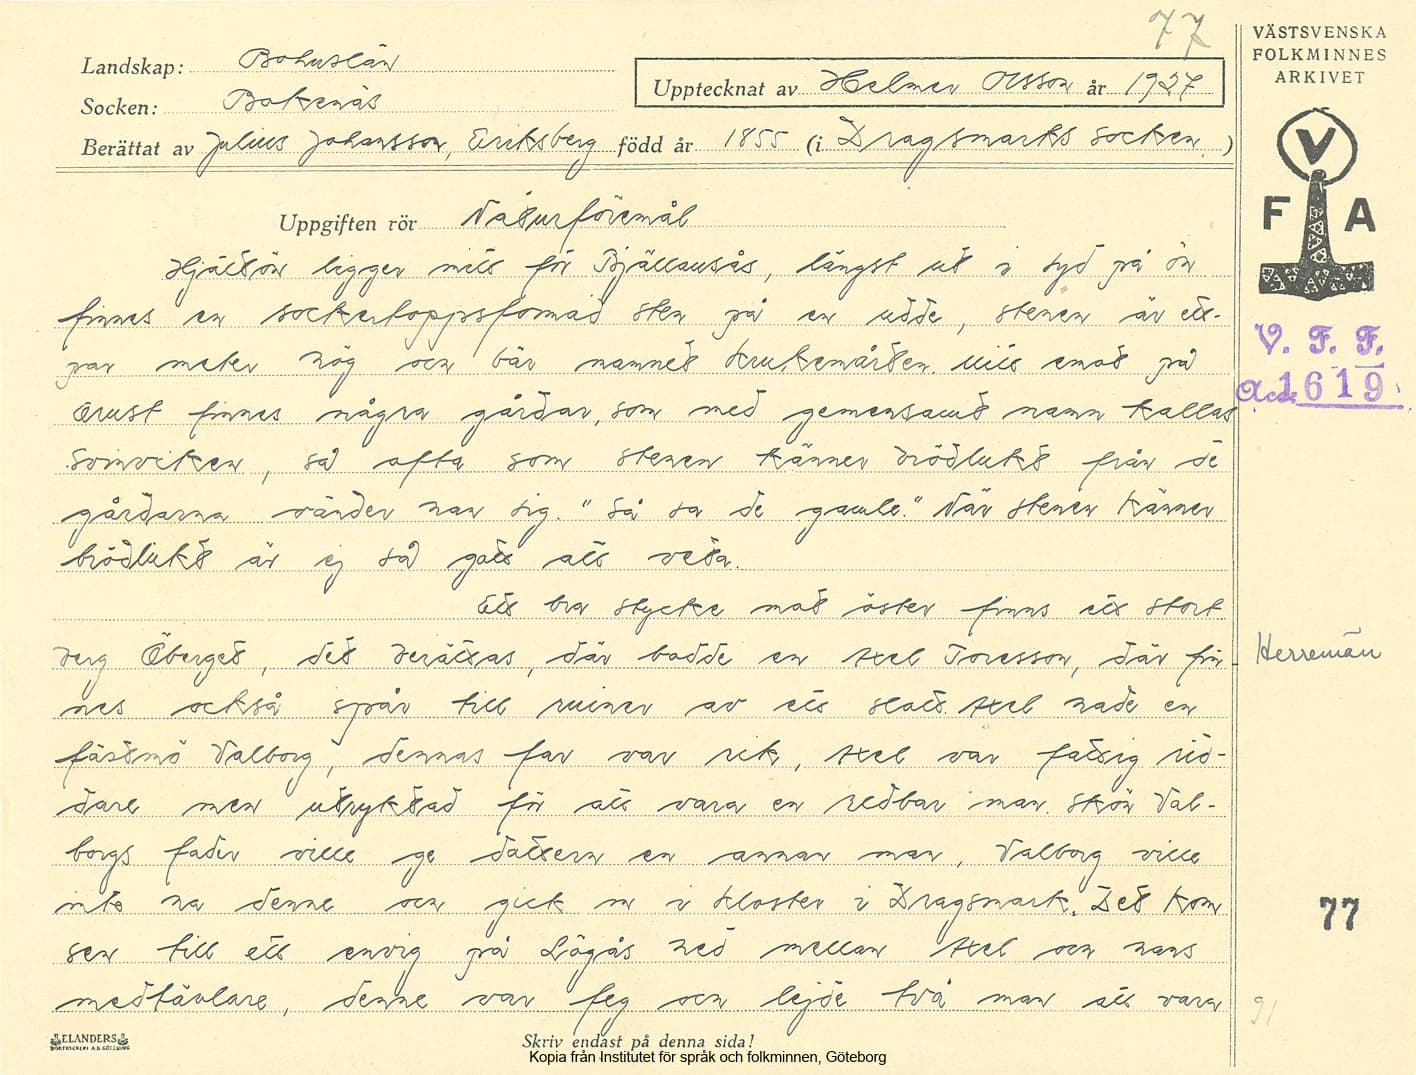 77
VÄSTSVENSKA
FOLKMINNES
ARKIVET
Landskap: Bohuslän
Socken: Bokenäs
Upptecknat av Helmer Olsson år 1927
Berättat av Julius Johansson, Eriksberg född år 1855 (i Dragsmarks socken.)
V
F A
Uppgiften rör Naturföremål
Hjältön ligger mitt för Bjällansås, längst ut i syd på ön
finnes en sockertoppsformad sten på en udde, stenen är ett-
par meter hög och bär namnet Krukemårten. Mitt emot på
Orust finnes några gårdar, som med gemensamt namn kallas
Svinviken, så ofta som stenen känner brödlukt från de
gårdarna vänder han sig. "Så sa de gamle." När stenen känner
brödlukt är ej så gott att veta.
Ett bra stycke mot öster finns ett stort
berg Öberget, det berättas, där bodde en Axel Toresson, där fin-
nes också spår till ruiner av ett slott. Axel hade en
fästmö Valborg, dennas far var rik, Axel var fattig rid-
dare men utryktad för att vara en redbar man. Skön Val-
borgs fader ville ge dottern en annan man, Valborg ville
inte ha denne och gick in i kloster i Dragsmark. Det kom
sen till ett envig på Lögås hed mellan Axel och hans
medtävlare, denne var feg och lejde två man att vara
V. F. F.
Acc. 1619
Herremän
77
91
ELANDERS
BOKTRYCKERI A.B. GÖTEBORG
Skriv endast på denna sida!
Kopia från Institutet för språk och folkminnen, Göteborg